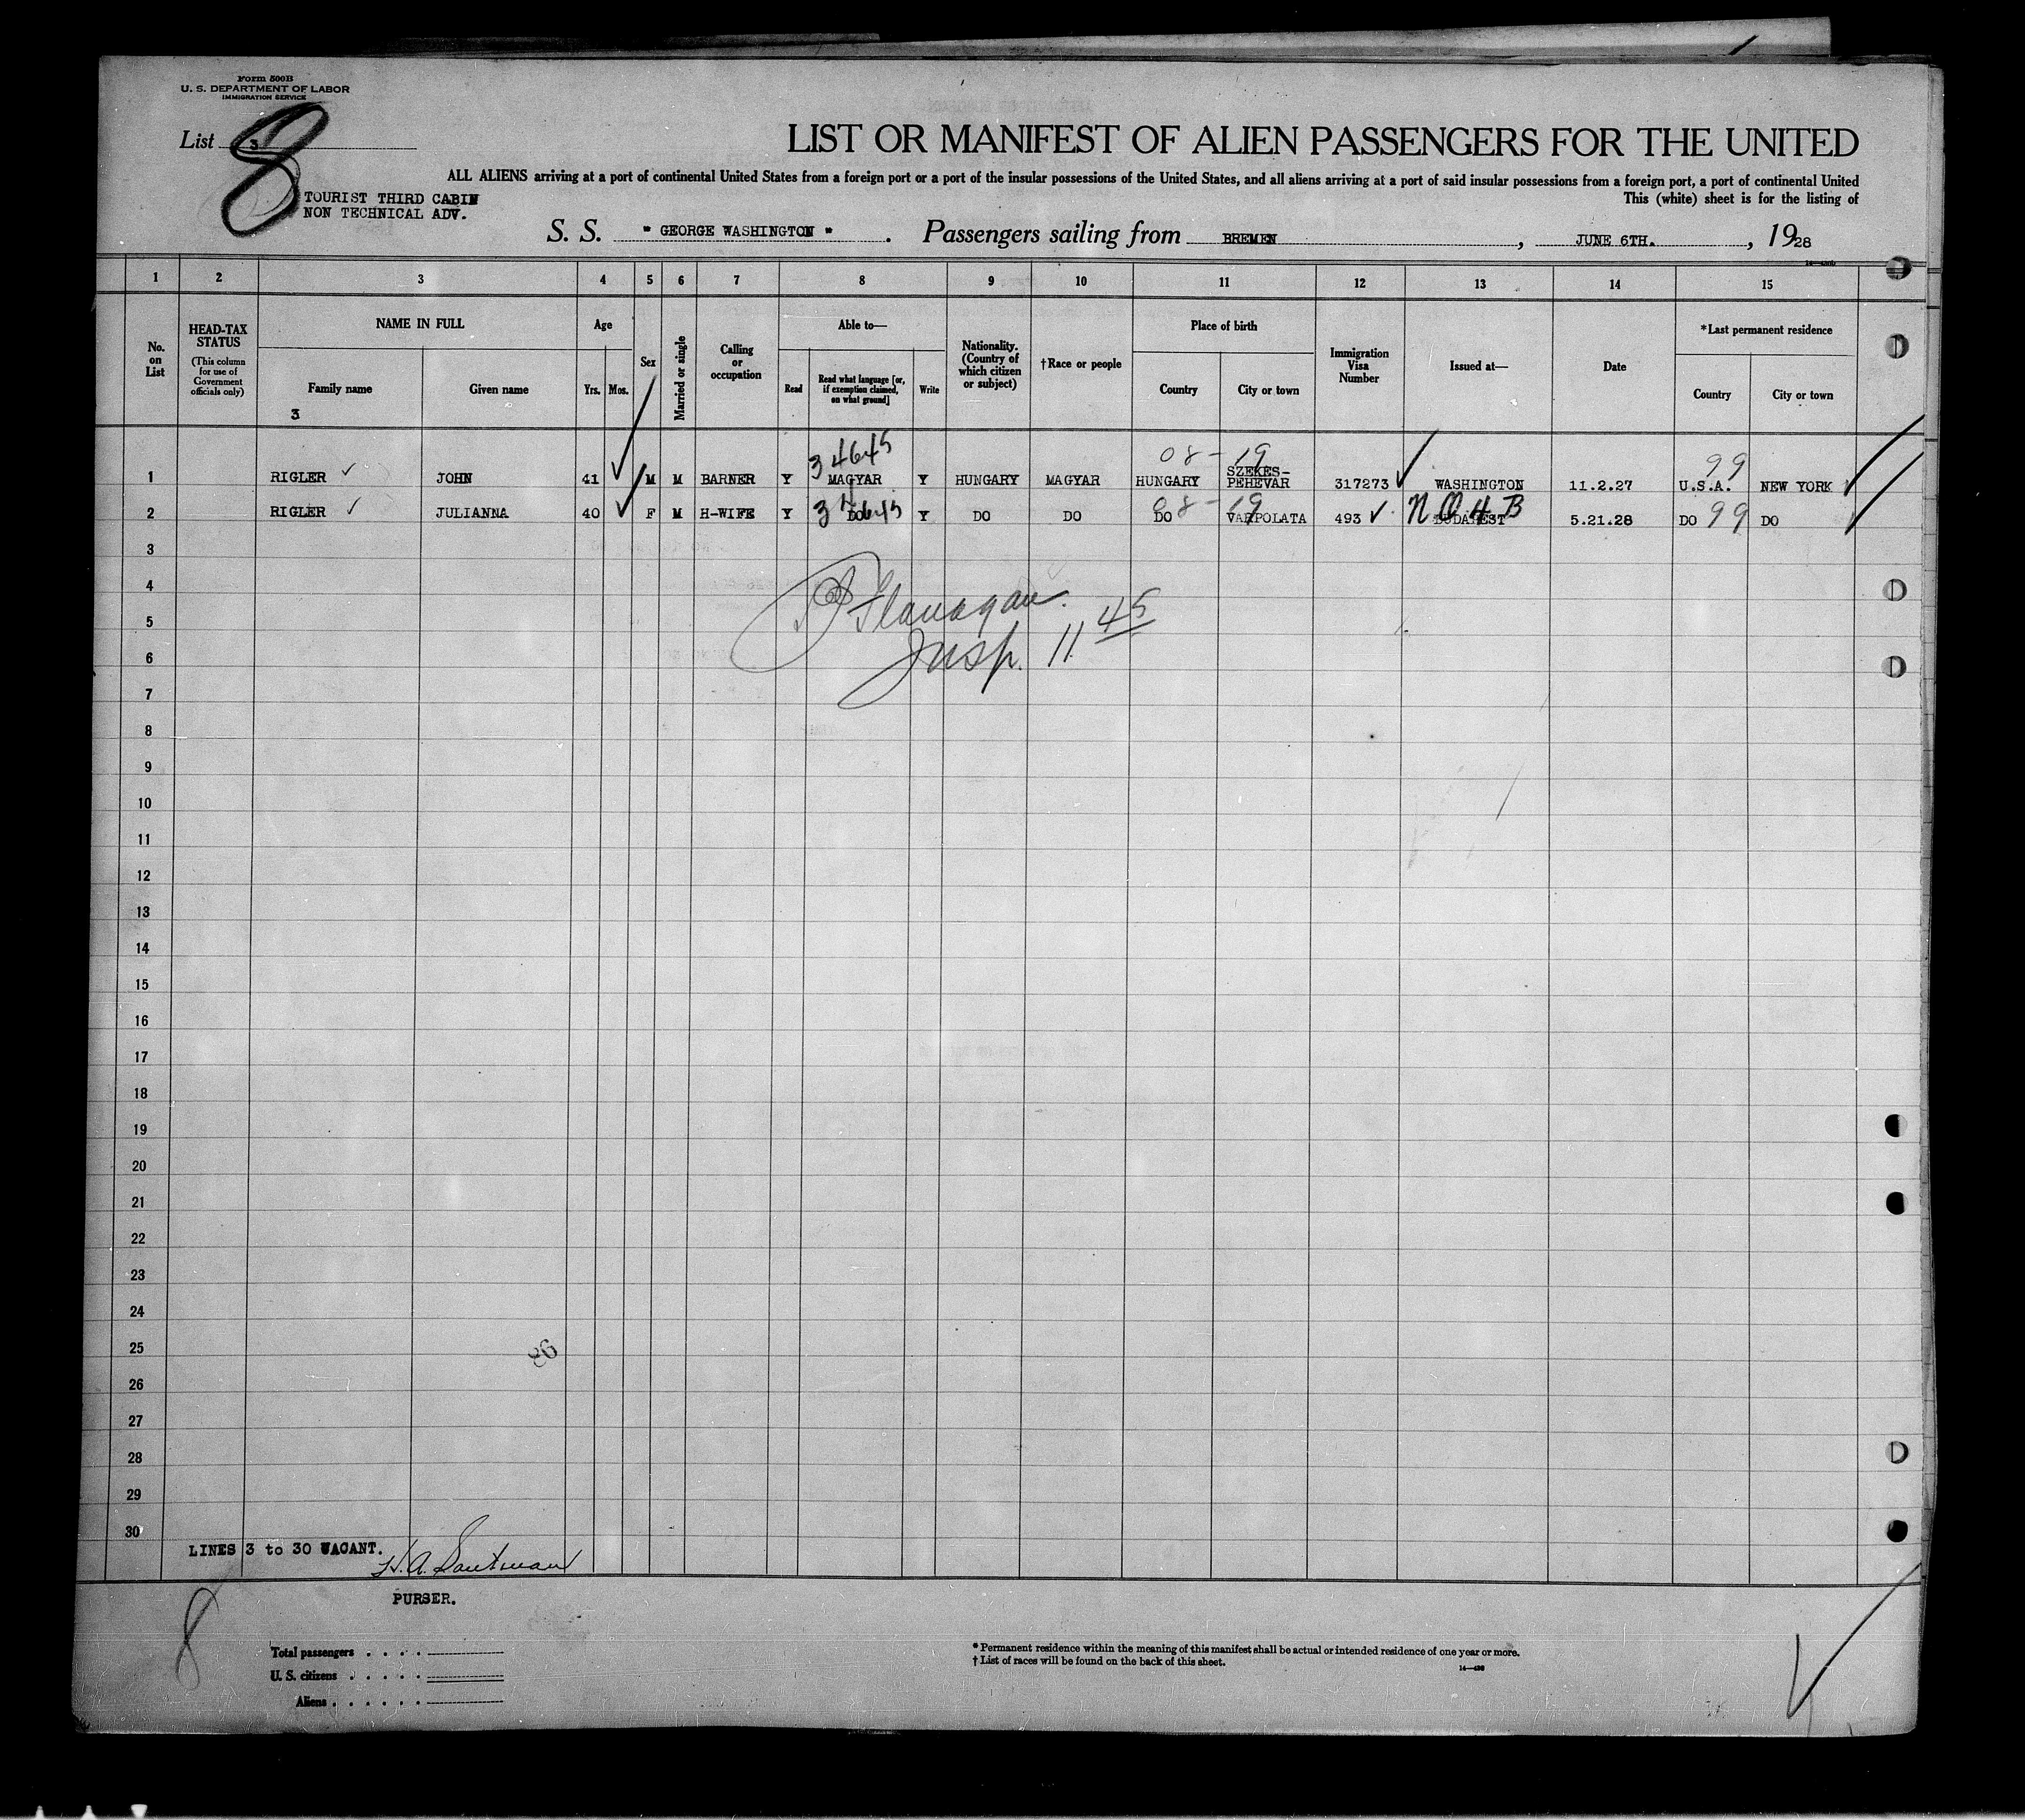 Form 500B
U. S. DEPARTMENT OF LABOR
IMMIGRATION SERVICE
List 3
8
LIST OR MANIFEST OF ALIEN PASSENGERS FOR THE UNITED
ALL ALIENS arriving at a port of continental United States from a foreign port or a port of the insular possessions of the United States, and all aliens arriving at a port of said insular possessions from a foreign port, a port of continental United
This (white) sheet is for the listing of
TOURIST THIRD CABIN
NON TECHNICAL ADV.
S. S. " GEORGE WASHINGTON " . Passengers sailing from BREMEN , JUNE 6TH. , 1928
1 2 3 4 5 6 7 8 9 10 11 12 13 14 15
No. on List
HEAD-TAX STATUS
(This column for use of Government officials only)
NAME IN FULL
Family name
Given name
3
Age
Yrs. Mos.
Sex
Married or single
Calling or occupation
Able to—
Read
Read what language [or, if exemption claimed, on what ground]
Write
Nationality. (Country of which citizen or subject)
†Race or people
Place of birth
Country
City or town
Immigration Visa Number
Issued at—
Date
*Last permanent residence
Country
City or town
34645 08-19 99
1 RIGLER JOHN 41 M M BARNER Y MAGYAR Y HUNGARY MAGYAR HUNGARY SZEKES-PEHEVAR 317273 WASHINGTON 11.2.27 U.S.A. NEW YORK
2 RIGLER JULIANNA 40 F M H-WIFE Y DO Y DO DO DO VARPOLATA 493 BUDAPEST 5.21.28 DO 99 DO
08-19
3
4
5
6
7
8
9
10
11
12
13
14
15
16
17
18
19
20
21
22
23
24
25
26
27
28
29
30
Flanagan.
Insp. 11 45
LINES 3 to 30 VACANT.
PURSER.
8
Total passengers
U. S. citizens
Aliens
* Permanent residence within the meaning of this manifest shall be actual or intended residence of one year or more.
† List of races will be found on the back of this sheet.